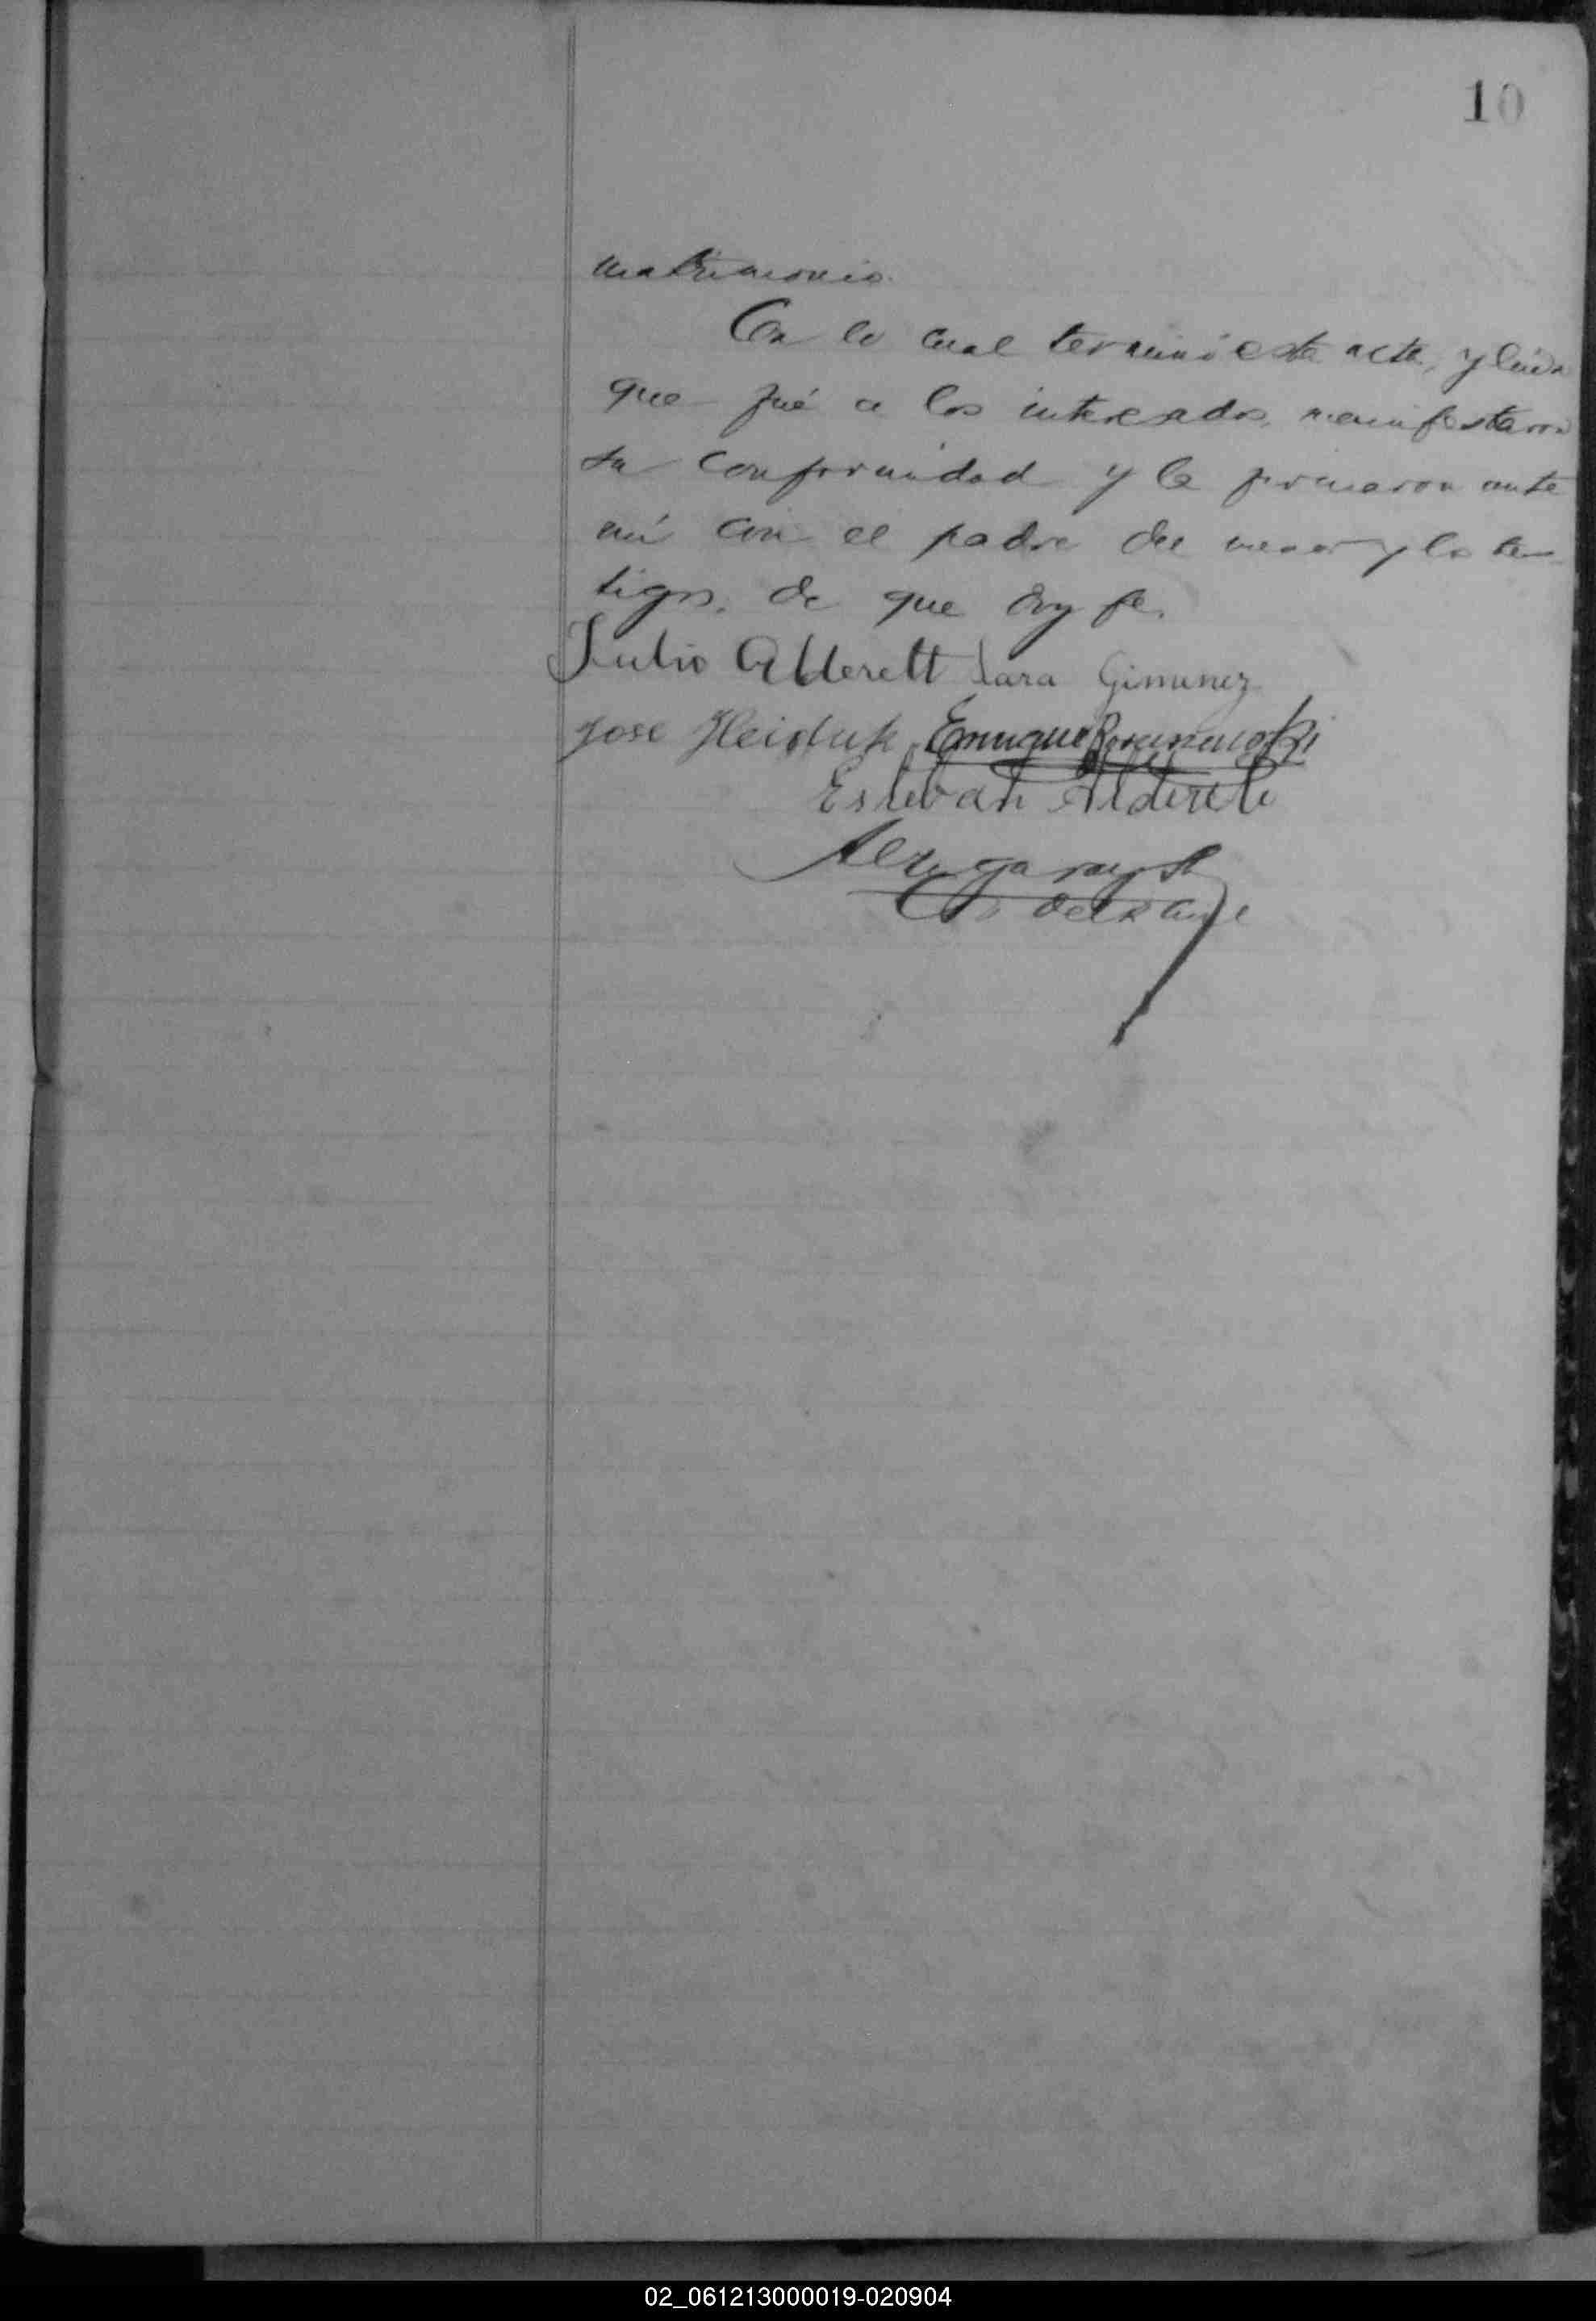 10
matrimonio.
Con lo cual terminó esta acta, y leida
que fué a los interesados, manifestaron
su conformidad y la firmaron ante
mí con el padre del menor y los tes
tigos, de que doy fe.
Julio Alderett Sara Gimenez
Jose Heiduk Enrique
Esteban Alderete
02_061213000019-020904